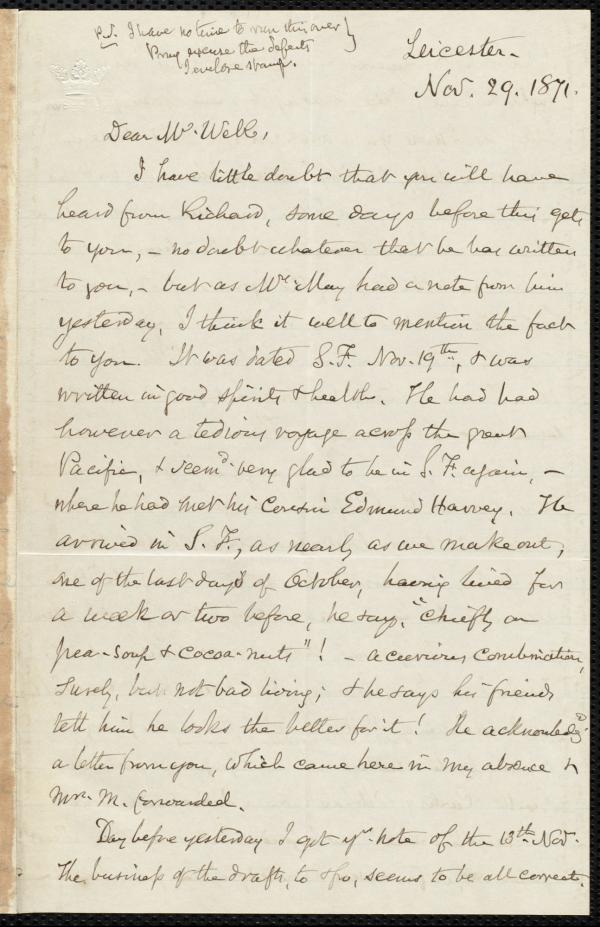 P.S. I have no time to run this over
Pray excuse the defects
I enclose stamp.
Leicester.
Nov. 29. 1871.
Dear Mr. Webb,
I have little doubt that you will have
heard from Richard, some days before this gets
to you, – no doubt whatever that he has written
to you, – but as Mrs. May had a note from him
yesterday, I think it well to mention the fact
to you. It was dated S.F. Nov. 19th, & was
written in good spirits & health. He had had
however a tedious voyage across the great
Pacific, & seemd. very glad to be in S. F. again, –
where he had met his Cousin Edmund Harvey. He
arrived in S. F., as nearly as we make out,
one of the last days of October, having lived for
a week or two before, he says, "chiefly on
pea-soup & cocoa-nuts"! – a curious combination,
surely, but not bad living; & he says his friends
tell him he looks the better for it! He acknowledg'd
a letter from you, which came here in my absence &
Mrs. M. forwarded.
Day before yesterday I got yr. note of the 13th. Nov.
The business of the drafts, to & fro, seems to be all correct.